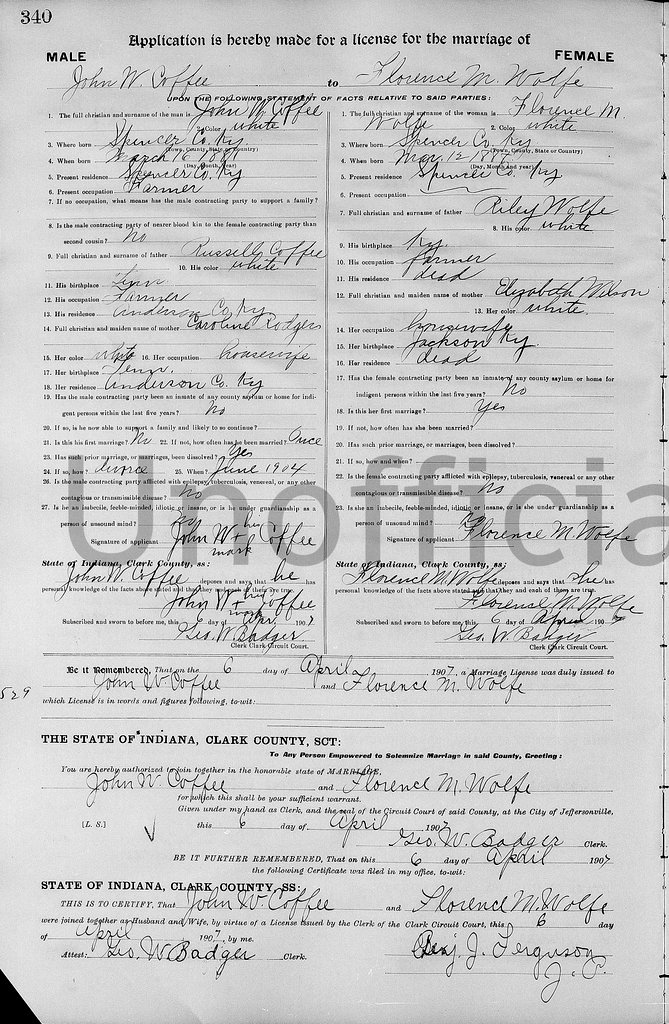 340
Application is hereby made for a license for the marriage of
MALE
FEMALE
John W. Coffee to Florence M. Wolfe
UPON THE FOLLOWING STATEMENT OF FACTS RELATIVE TO SAID PARTIES:
1. The full christian and surname of the man is John W Coffee
2. Color white
3. Where born Spencer Co. Ky
(Town, County, State or Country)
4. When born March 16 1881
(Day, Month, Year)
5. Present residence Spencer Co, Ky
6. Present occupation Farmer
7. If no occupation, what means has the male contracting party to support a family?
8. Is the male contracting party of nearer blood kin to the female contracting party than
second cousin? No
9. Full christian and surname of father Russell Coffee
10. His color white
11. His birthplace Tenn
12. His occupation Farmer
13. His residence Anderson Co. Ky
14. Full christian and maiden name of mother Caroline Rodgers
15. Her color white 16. Her occupation housewife
17. Her birthplace Tenn.
18. Her residence Anderson Co. Ky
19. Has the male contracting party been an inmate of any county asylum or home for indi-
gent persons within the last five years? No
20. If so, is he now able to support a family and likely to continue?
21. Is this his first marriage? No 22. If not, how often has he been married? Once
23. Has such prior marriage, or marriages, been dissolved? Yes
24. If so, how? divorce 25. When? June 1904
26. Is the male contracting party afflicted with epilepsy, tuberculosis, venereal or any other
contagious or transmissible disease? No
27. Is he an imbecile, feeble-minded, idiotic or insane, or is he under guardianship as a
person of unsound mind? No
Signature of applicant John W + Coffee
his
mark
State of Indiana, Clark County, ss:
John W. Coffee deposes and says that he has
personal knowledge of the facts above stated and that they and each of them are true.
John W + Coffee
his
mark
Subscribed and sworn to before me, this 6 day of Apr. 1907
Geo. W. Badger
Clerk Clark Circuit Court.
1. The full christian and surname of the woman is Florence M.
Wolfe 2. Color white
3. Where born Spencer Co. Ky
(Town, County, State or Country)
4. When born
(Day, Month and year)
5. Present residence Spencer Co. Ky
6. Present occupation
7. Full christian and surname of father Riley Wolfe
8. His color white
9. His birthplace Ky.
10. His occupation farmer
11. His residence dead
12. Full christian and maiden name of mother Elizabeth Wilson
13. Her color white.
14. Her occupation housewife
15. Her birthplace Jackson Ky.
16. Her residence dead
17. Has the female contracting party been an inmate of any county asylum or home for
indigent persons within the last five years? No
18. Is this her first marriage? Yes
19. If not, how often has she been married?
20. Has such prior marriage, or marriages, been dissolved?
21. If so, how and when?
22. Is the female contracting party afflicted with epilepsy, tuberculosis, venereal or any other
contagious or transmissible disease? No
23. Is she an imbecile, feeble-minded, idiotic or insane, or is she under guardianship as a
person of unsound mind? No
Signature of applicant Florence M Wolfe
State of Indiana, Clark County, ss:
Florence M. Wolfe deposes and says that she has
personal knowledge of the facts above stated and that they and each of them are true.
Florence M. Wolfe
Subscribed and sworn to before me, this 6 day of April 1907
Geo. W. Badger
Clerk Clark Circuit Court.
Unofficia
Be it Remembered, That on the 6 day of April 1907, a Marriage License was duly issued to
529
John W Coffee and Florence M. Wolfe
which License is in words and figures following, to-wit:
THE STATE OF INDIANA, CLARK COUNTY, SCT:
To Any Person Empowered to Solemnize Marriage in said County, Greeting:
You are hereby authorized to join together in the honorable state of MARRIAGE,
John W. Coffee and Florence M. Wolfe
for which this shall be your sufficient warrant.
Given under my hand as Clerk, and the seal of the Circuit Court of said county, at the City of Jeffersonville,
[L. S.] this 6 day of April 1907
Geo. W. Badger Clerk.
BE IT FURTHER REMEMBERED, That on this 6 day of April 1907
the following Certificate was filed in my office, to-wit:
STATE OF INDIANA, CLARK COUNTY, SS:
THIS IS TO CERTIFY, That John W Coffee and Florence M. Wolfe
were joined together as Husband and Wife, by virtue of a License issued by the Clerk of the Clark Circuit Court, this 6 day
of April 1907, by me.
Attest: Geo. W Badger Clerk.
Benj. J. Ferguson
J. P.